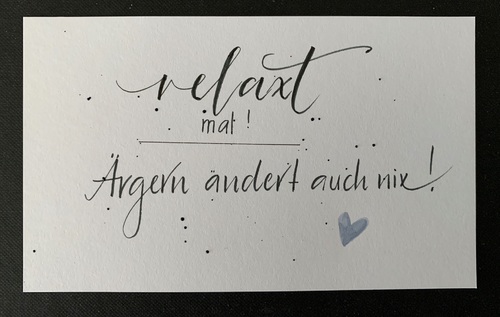 relaxt
mat!
Ärgern ändert auch nix!